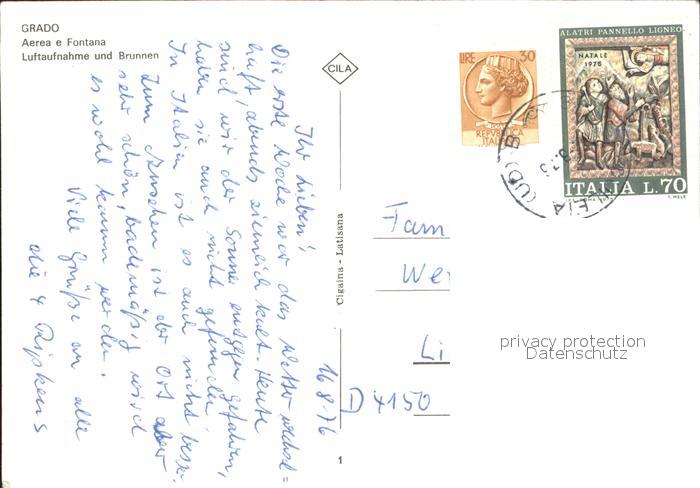 GRADO
Aerea e Fontana
Luftaufnahme und Brunnen
CILA
Cigaina - Latisana
1
LIRE 30
REPVBBLICA
ITALIANA
ALATRI PANNELLO LIGNEO
NATALE
1975
ITALIA L.70
T. MELE
(UD)
16.8.76
Ihr Lieben!
Die erste Woche war das Wetter wechsel=
haft, abends ziemlich kalt. Heute
sind wir der Sonne entgegen gefahren,
haben sie auch nicht gefunden.
In Italien ist es auch nicht besser.
Zum Ansehen ist der Ort aber
sehr schön, bademäßig wird
es wohl kaum werden.
Viele Grüße an alle
die 4 Ripkens
Fam
We
Li
D 4150
privacy protection
Datenschutz